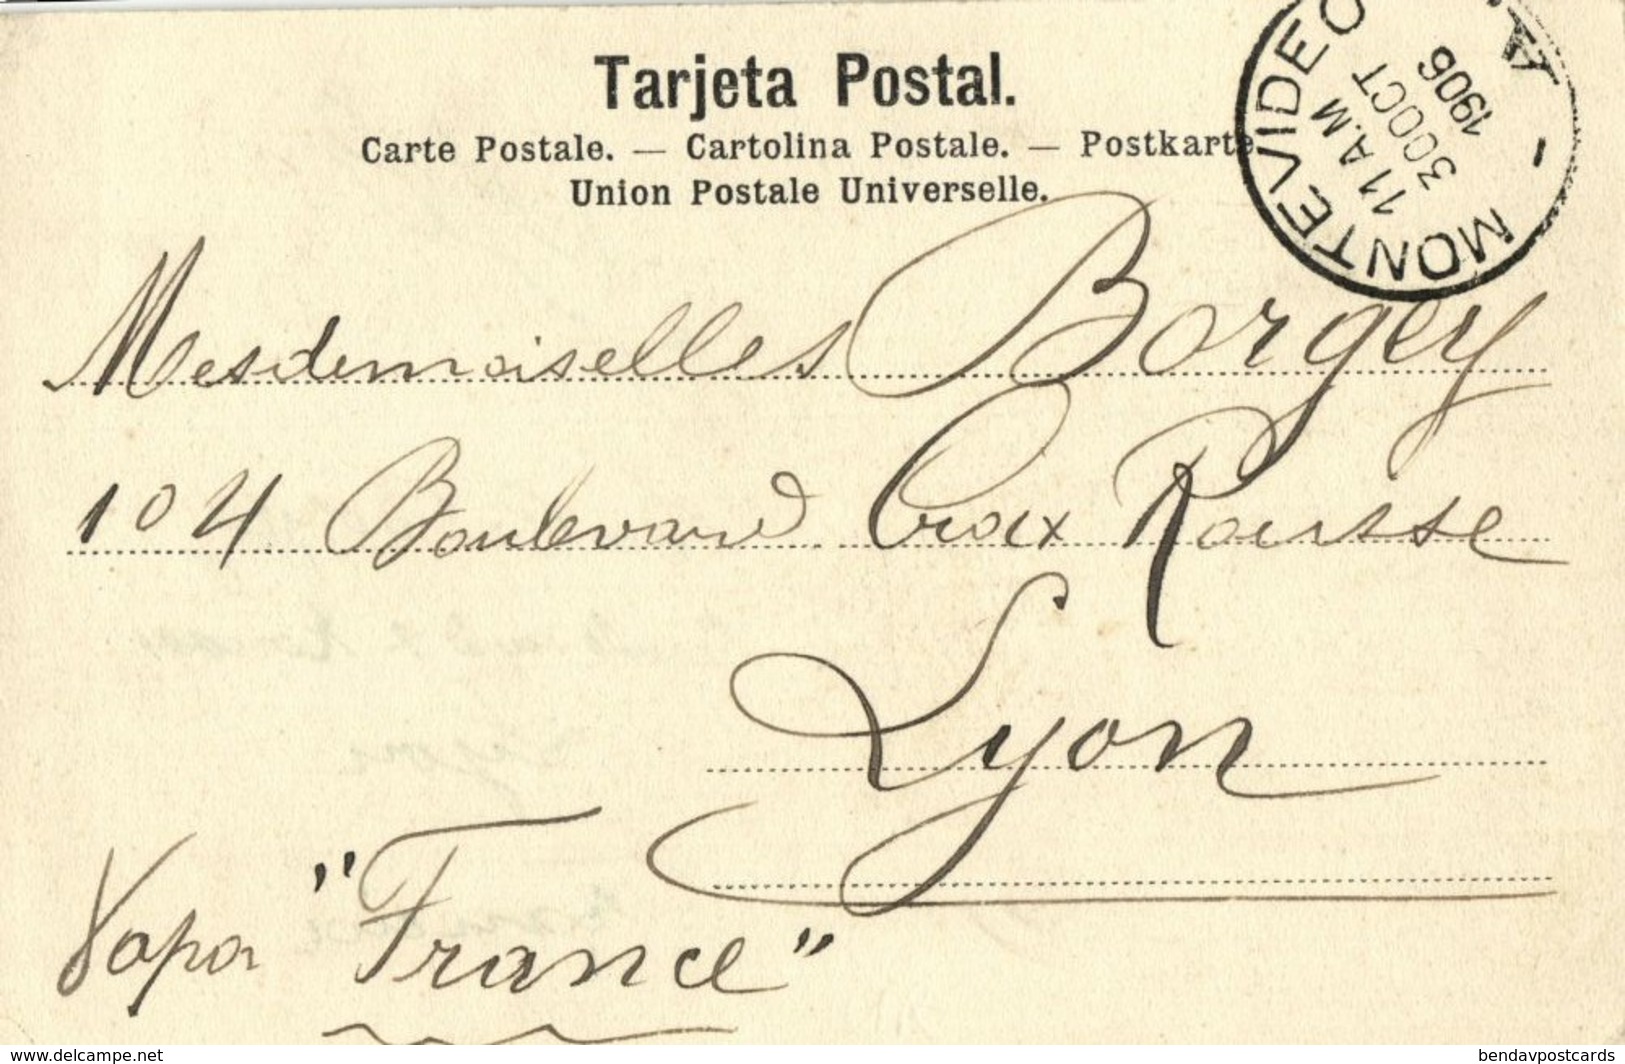 Tarjeta Postal.
Carte Postale. — Cartolina Postale. — Postkarte.
Union Postale Universelle.
MONTEVIDEO
11 A.M
30 OCT
1906
A
Mesdemoiselles Borgey
104 Boulevard Croix Rousse
Lyon
Vapor "France"
www.delcampe.net
bendavpostcards